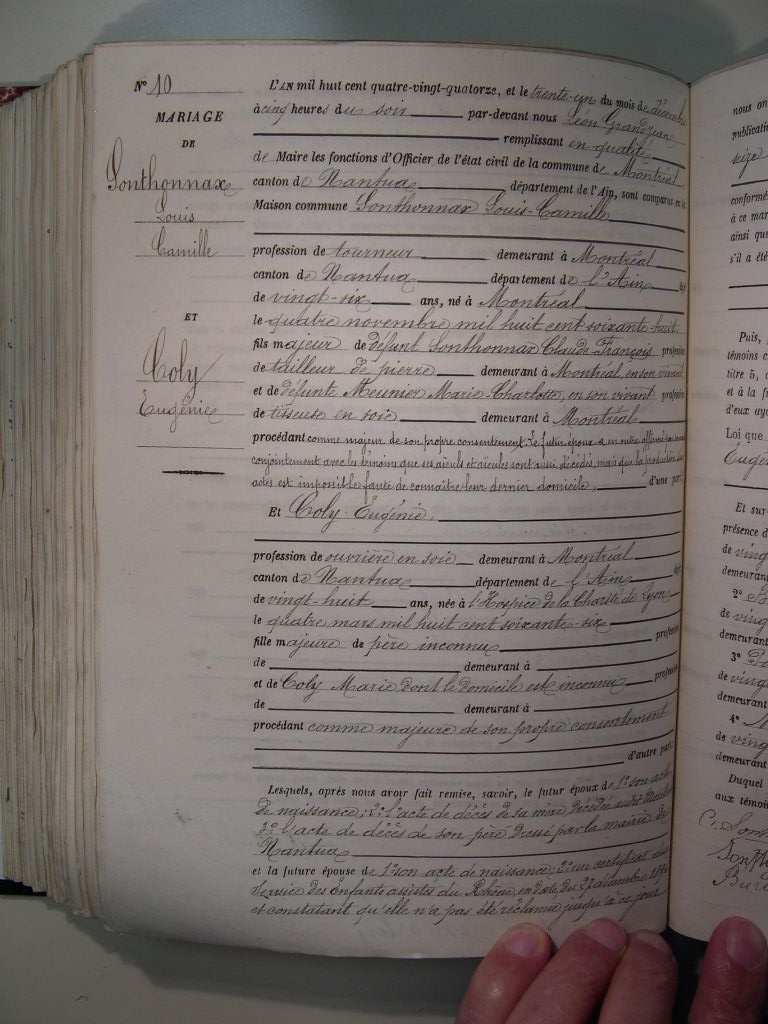 N° 10
MARIAGE
DE
Sonthonnax
Louis
Camille
ET
Coly
Eugénie
L'AN mil huit cent quatre-vingt-quatorze, et le trente-un du mois de décembre
à cinq heures du soir par-devant nous Léon Grandjean
remplissant en qualité
de Maire les fonctions d'Officier de l'état civil de la commune de Montréal
canton de Nantua département de l'Ain, sont comparus en la
Maison commune Sonthonnax Louis-Camille
profession de tourneur demeurant à Montréal
canton de Nantua département de l'Ain
de vingt-six ans, né à Montréal
le quatre novembre mil huit cent soixante huit
fils majeur de défunt Sonthonnax Claude François profession
de tailleur de pierre demeurant à Montréal, en son vivant
et de défunte Meunier Marie-Charlotte, en son vivant profession
de tisseuse en soie demeurant à Montréal
procédant comme majeur de son propre consentement. Le futur époux a en outre affirmé
conjointement avec les témoins que ses aïeuls et aïeules sont aussi décédés, mais que la production des
actes est impossible faute de connaître leur dernier domicile d'une part
Et Coly Eugénie
profession de ouvrière en soie demeurant à Montréal
canton de Nantua département de l'Ain
de vingt-huit ans, née à l'Hospice de la Charité de Lyon
le quatre mars mil huit cent soixante-six
fille majeure de père inconnu profession
de demeurant à
et de Coly Marie dont le domicile est inconnu profession
de demeurant à
procédant comme majeure de son propre consentement
d'autre part
Lesquels, après nous avoir fait remise, savoir, le futur époux de 1° son acte
de naissance; 2° l'acte de décès de sa mère décédée
3° l'acte de décès de son père dressé par la mairie de
Nantua
et la future épouse de 1° son acte de naissance; 2° un certificat du
Service des Enfants assistés du Rhône, en date du 27 décembre
et constatant qu'elle n'a pas été réclamée jusqu'à ce jour
nous on
publication
seize
conformé
à ce mar
ainsi que
s'il a été
Puis,
témoins c
titre 5,
et à la f
d'eux ay
Loi que
Eugén
Et sur
présence d
de vingt
demeurant
2°
de vingt
demeurant
3°
de vingt
demeurant
4°
de ving
demeurant
Duquel
aux témoi